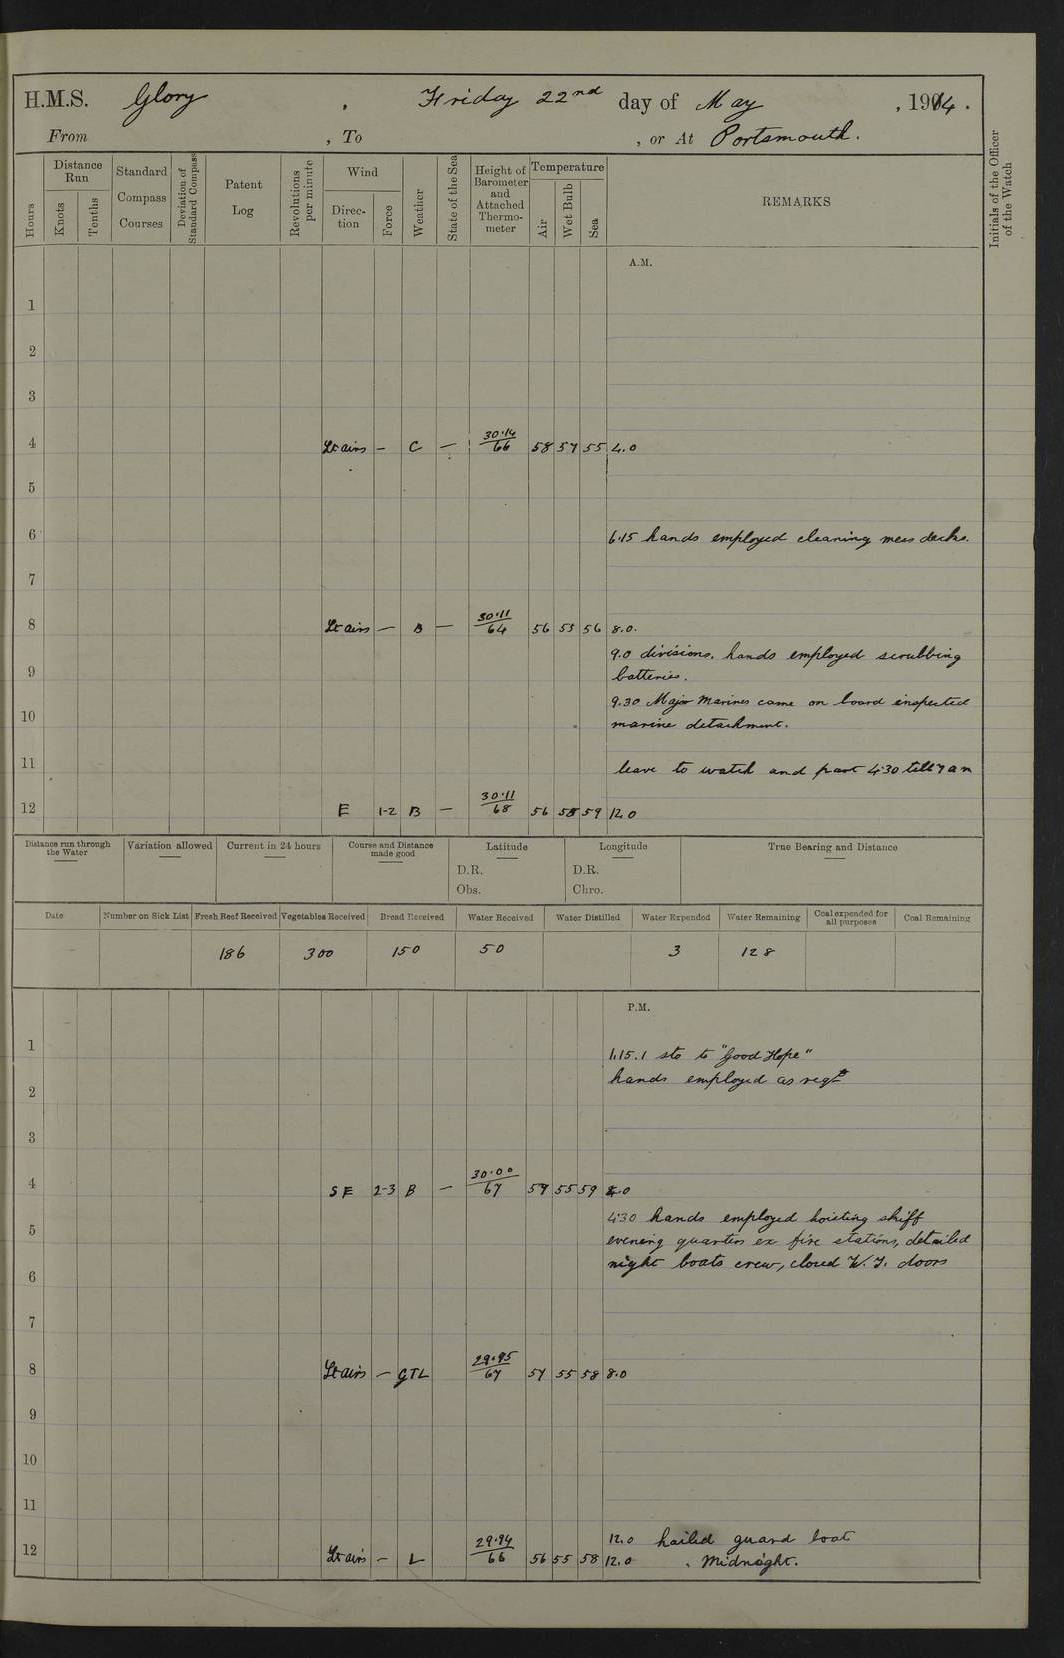 H.M.S. Glory , Friday 22nd day of May , 1914 .
From , To , or At Portsmouth.
Hours
Distance Run
Knots
Tenths
Standard Compass Courses
Deviation of Standard Compass
Patent Log
Revolutions per minute
Wind
Direction
Force
Weather
State of the Sea
Height of Barometer and Attached Thermometer
Temperature
Air
Wet Bulb
Sea
REMARKS
Initials of the Officer of the Watch
A.M.
1
2
3
4 Lt airs – C – 30·14/66 58 57 55 4.0
5
6 6·15 hands employed cleaning mess decks.
7
8 Lt airs – B – 30·11/64 56 53 56 8.0.
9.0 divisions. hands employed scrubbing
9 batteries.
9.30 Major Marines came on board inspected
10 marine detachment.
11 leave to watch and part 4·30 till 7 am
12 E 1-2 B – 30·11/68 56 58 59 12.0
Distance run through the Water
Variation allowed
Current in 24 hours
Course and Distance made good
Latitude
D.R.
Obs.
Longitude
D.R.
Chro.
True Bearing and Distance
Date Number on Sick List Fresh Beef Received Vegetables Received Bread Received Water Received Water Distilled Water Expended Water Remaining Coal expended for all purposes Coal Remaining
186 300 150 50 3 128
P.M.
1 1.15. 1 sto to "Good Hope"
hands employed as reqd
2
3
4 SE 2-3 B – 30·00/67 57 55 59 4.0
4·30 hands employed hoisting skiff
5 evening quarters ex fire stations, detailed
night boats crew, closed W.T. doors
6
7
8 Lt airs – GTL 29·95/67 57 55 58 8.0
9
10
11
12.0 hailed guard boat
12 Lt airs – L 29·94/66 56 55 58 12.0 Midnight.